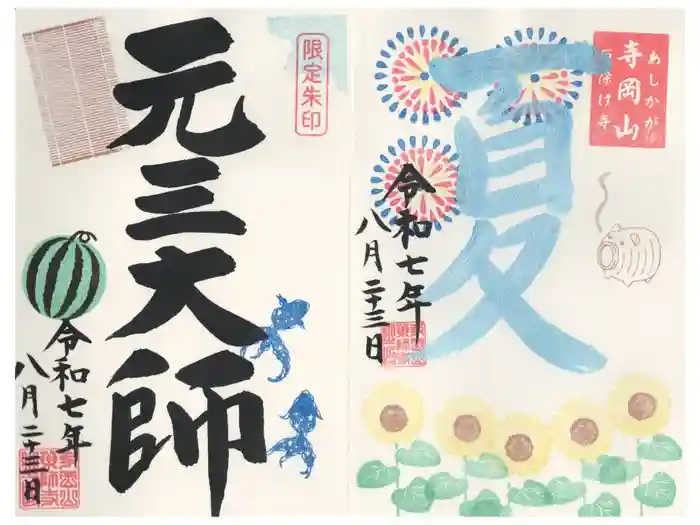 寺岡山
あしかが
厄除け寺
夏
令和七年
八月二十三日
限定朱印
元三大師
令和七年
八月二十三日